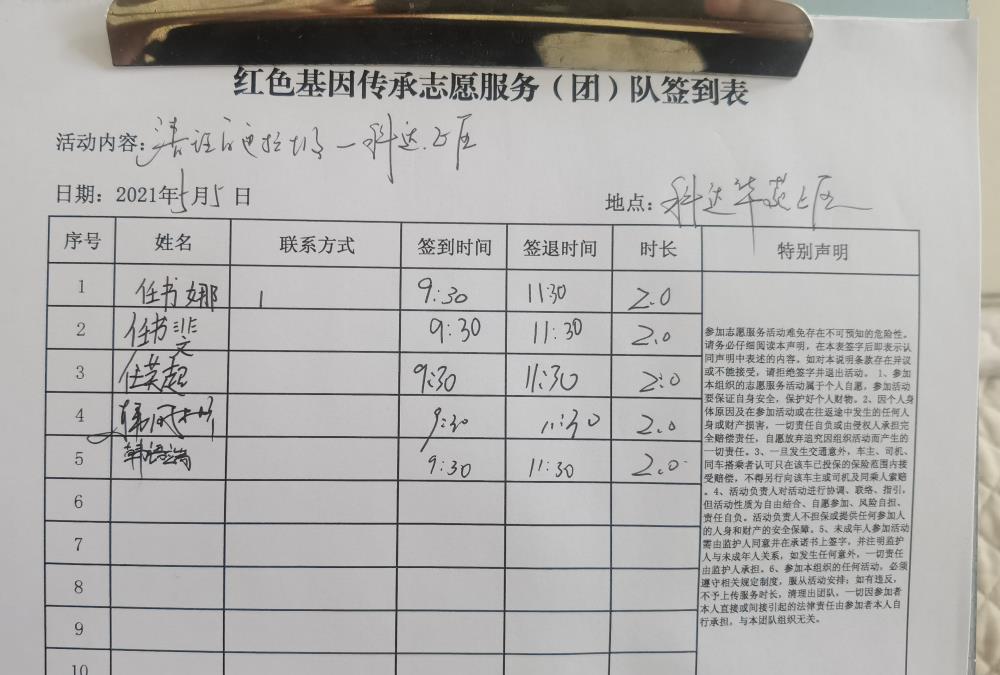 红色基因传承志愿服务（团）队签到表
活动内容：清理 垃圾 一科达上
日期：2021年5月5日
地点：科达华苑上
序号 姓名 联系方式 签到时间 签退时间 时长 特别声明
1 任书娜 9:30 11:30 2.0
2 任书斐 9:30 11:30 2.0
3 任英超 9:30 11:30 2.0
4 韩 9:30 11:30 2.0
5 韩语 9:30 11:30 2.0
6
7
8
9
10
参加志愿服务活动难免存在不可预知的危险性。
请务必仔细阅读本声明，在本表签字后即表示认
同声明中表述的内容。如对本说明条款存在异议
或不能接受，请拒绝签字并退出活动。 1、参加
本组织的志愿服务活动属于个人自愿，参加活动
要保证自身安全，保护好个人财物。2、因个人身
体原因及在参加活动或在往返途中发生的任何人
身或财产损害，一切责任自负或由侵权人承担完
全赔偿责任，自愿放弃追究因组织活动而产生的
一切责任。3、一旦发生交通意外，车主、司机、
同车搭乘者认可只在该车已投保的保险范围内接
受赔偿，不得另行向该车主或司机及同乘人索赔
。4、活动负责人对活动进行协调、联络、指引，
但活动性质为自由结合、自愿参加、风险自担、
责任自负。活动负责人不担保或提供任何参加人
的人身和财产的安全保障。5、未成年人参加活动
需由监护人同意并在承诺书上签字，并注明监护
人与未成年人关系，如发生任何意外，一切责任
由监护人承担。6、参加本组织的任何活动，必须
遵守相关规定制度，服从活动安排；如有违反，
不予上传服务时长，清理出团队，一切因参加者
本人直接或间接引起的法律责任由参加者本人自
行承担，与本团队组织无关。